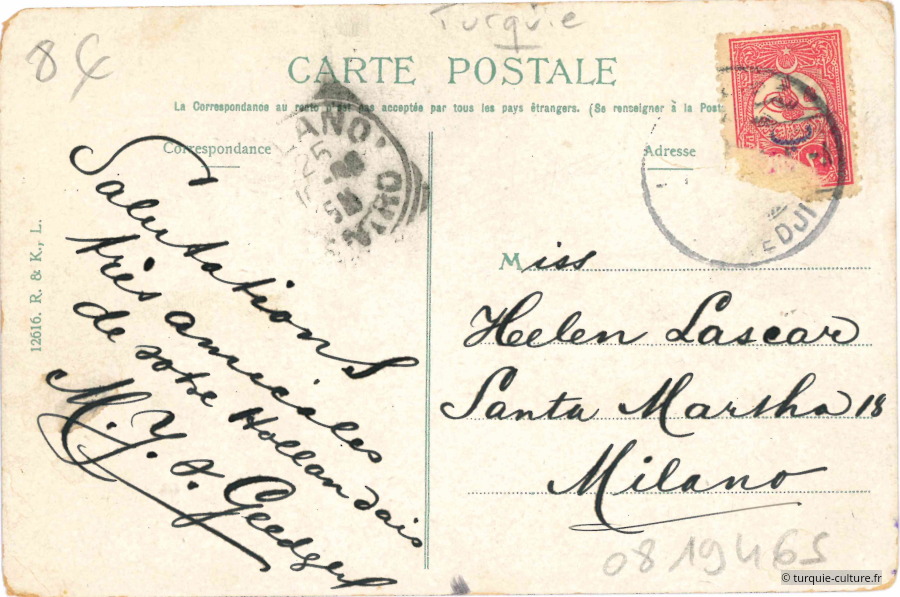 Turquie
8€
CARTE POSTALE
La Correspondance au recto n'est pas acceptée par tous les pays étrangers. (Se renseigner à la Post
Correspondance
Adresse
ANO
EDJI
12616. R. & K., L.
Salutations
très amicales
de votre Hollandais
M. Y. v.
Miss
Helen Lascar
Santa Martha 18
Milano
0819465
© turquie-culture.fr